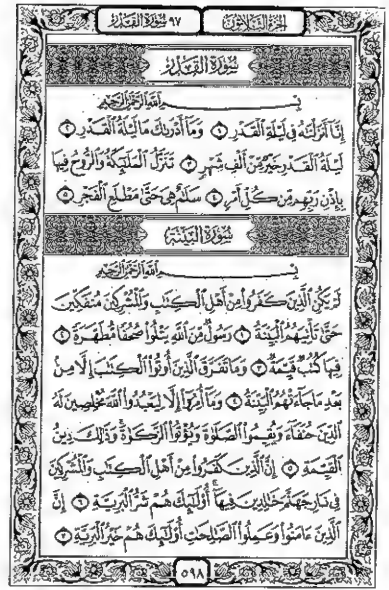 الجزء الثلاثون
٩٧ سورة القدر
سورة القدر
بسم الله الرحمن الرحيم
إِنَّا أَنزَلْنَٰهُ فِى لَيْلَةِ ٱلْقَدْرِ ١ وَمَآ أَدْرَىٰكَ مَا لَيْلَةُ ٱلْقَدْرِ ٢
لَيْلَةُ ٱلْقَدْرِ خَيْرٌ مِّنْ أَلْفِ شَهْرٍ ٣ تَنَزَّلُ ٱلْمَلَٰٓئِكَةُ وَٱلرُّوحُ فِيهَا
بِإِذْنِ رَبِّهِم مِّن كُلِّ أَمْرٍ ٤ سَلَٰمٌ هِىَ حَتَّىٰ مَطْلَعِ ٱلْفَجْرِ ٥
سورة البينة
بسم الله الرحمن الرحيم
لَمْ يَكُنِ ٱلَّذِينَ كَفَرُوا۟ مِنْ أَهْلِ ٱلْكِتَٰبِ وَٱلْمُشْرِكِينَ مُنفَكِّينَ
حَتَّىٰ تَأْتِيَهُمُ ٱلْبَيِّنَةُ ١ رَسُولٌ مِّنَ ٱللَّهِ يَتْلُوا۟ صُحُفًا مُّطَهَّرَةً ٢
فِيهَا كُتُبٌ قَيِّمَةٌ ٣ وَمَا تَفَرَّقَ ٱلَّذِينَ أُوتُوا۟ ٱلْكِتَٰبَ إِلَّا مِنۢ
بَعْدِ مَا جَآءَتْهُمُ ٱلْبَيِّنَةُ ٤ وَمَآ أُمِرُوٓا۟ إِلَّا لِيَعْبُدُوا۟ ٱللَّهَ مُخْلِصِينَ لَهُ
ٱلدِّينَ حُنَفَآءَ وَيُقِيمُوا۟ ٱلصَّلَوٰةَ وَيُؤْتُوا۟ ٱلزَّكَوٰةَ وَذَٰلِكَ دِينُ
ٱلْقَيِّمَةِ ٥ إِنَّ ٱلَّذِينَ كَفَرُوا۟ مِنْ أَهْلِ ٱلْكِتَٰبِ وَٱلْمُشْرِكِينَ
فِى نَارِ جَهَنَّمَ خَٰلِدِينَ فِيهَآ أُو۟لَٰٓئِكَ هُمْ شَرُّ ٱلْبَرِيَّةِ ٦ إِنَّ
ٱلَّذِينَ ءَامَنُوا۟ وَعَمِلُوا۟ ٱلصَّٰلِحَٰتِ أُو۟لَٰٓئِكَ هُمْ خَيْرُ ٱلْبَرِيَّةِ ٧
٥٩٨